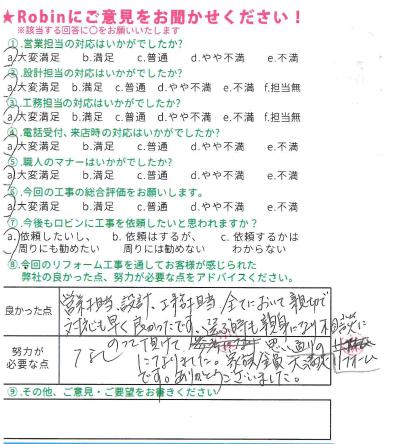 ★Robinにご意見をお聞かせください！
※該当する回答に○をお願いいたします
①.営業担当の対応はいかがでしたか?
a.大変満足 b.満足 c.普通 d.やや不満 e.不満
②.設計担当の対応はいかがでしたか?
a.大変満足 b.満足 c.普通 d.やや不満 e.不満 f.担当無
③.工務担当の対応はいかがでしたか?
a.大変満足 b.満足 c.普通 d.やや不満 e.不満 f.担当無
④.電話受付、来店時の対応はいかがでしたか?
a.大変満足 b.満足 c.普通 d.やや不満 e.不満
⑤.職人のマナーはいかがでしたか?
a.大変満足 b.満足 c.普通 d.やや不満 e.不満
⑥.今回の工事の総合評価をお願いします。
a.大変満足 b.満足 c.普通 d.やや不満 e.不満
⑦.今後もロビンに工事を依頼したいと思われますか？
a.依頼したいし、 b.依頼はするが、 c.依頼するかは
周りにも勧めたい 周りには勧めない わからない
⑧.今回のリフォーム工事を通してお客様が感じられた
弊社の良かった点、努力が必要な点をアドバイスください。
良かった点
営業担当、設計、工務担当 全てにおいて親切で
対応も早く良かったです。選ぶ時も親身になり相談に
のって頂けて 思い通りの リフォーム
になりました。家族全員 大満足
です。ありがとうございました。
努力が
必要な点
なし
⑨.その他、ご意見・ご要望をお書きください